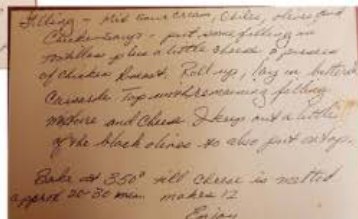 Filling - Mix sour cream, Chiles, olives and
Chicken Soup - put some filling in
tortillas plus a little cheese & pieces
of Chicken Breast. Roll up, lay in buttered
Casserole Top with remaining filling
mixture and Cheese. I keep out a little
of the black olives to also put on top.
Bake at 350° till cheese is melted
approx 20-30 min. makes 12
Enjoy